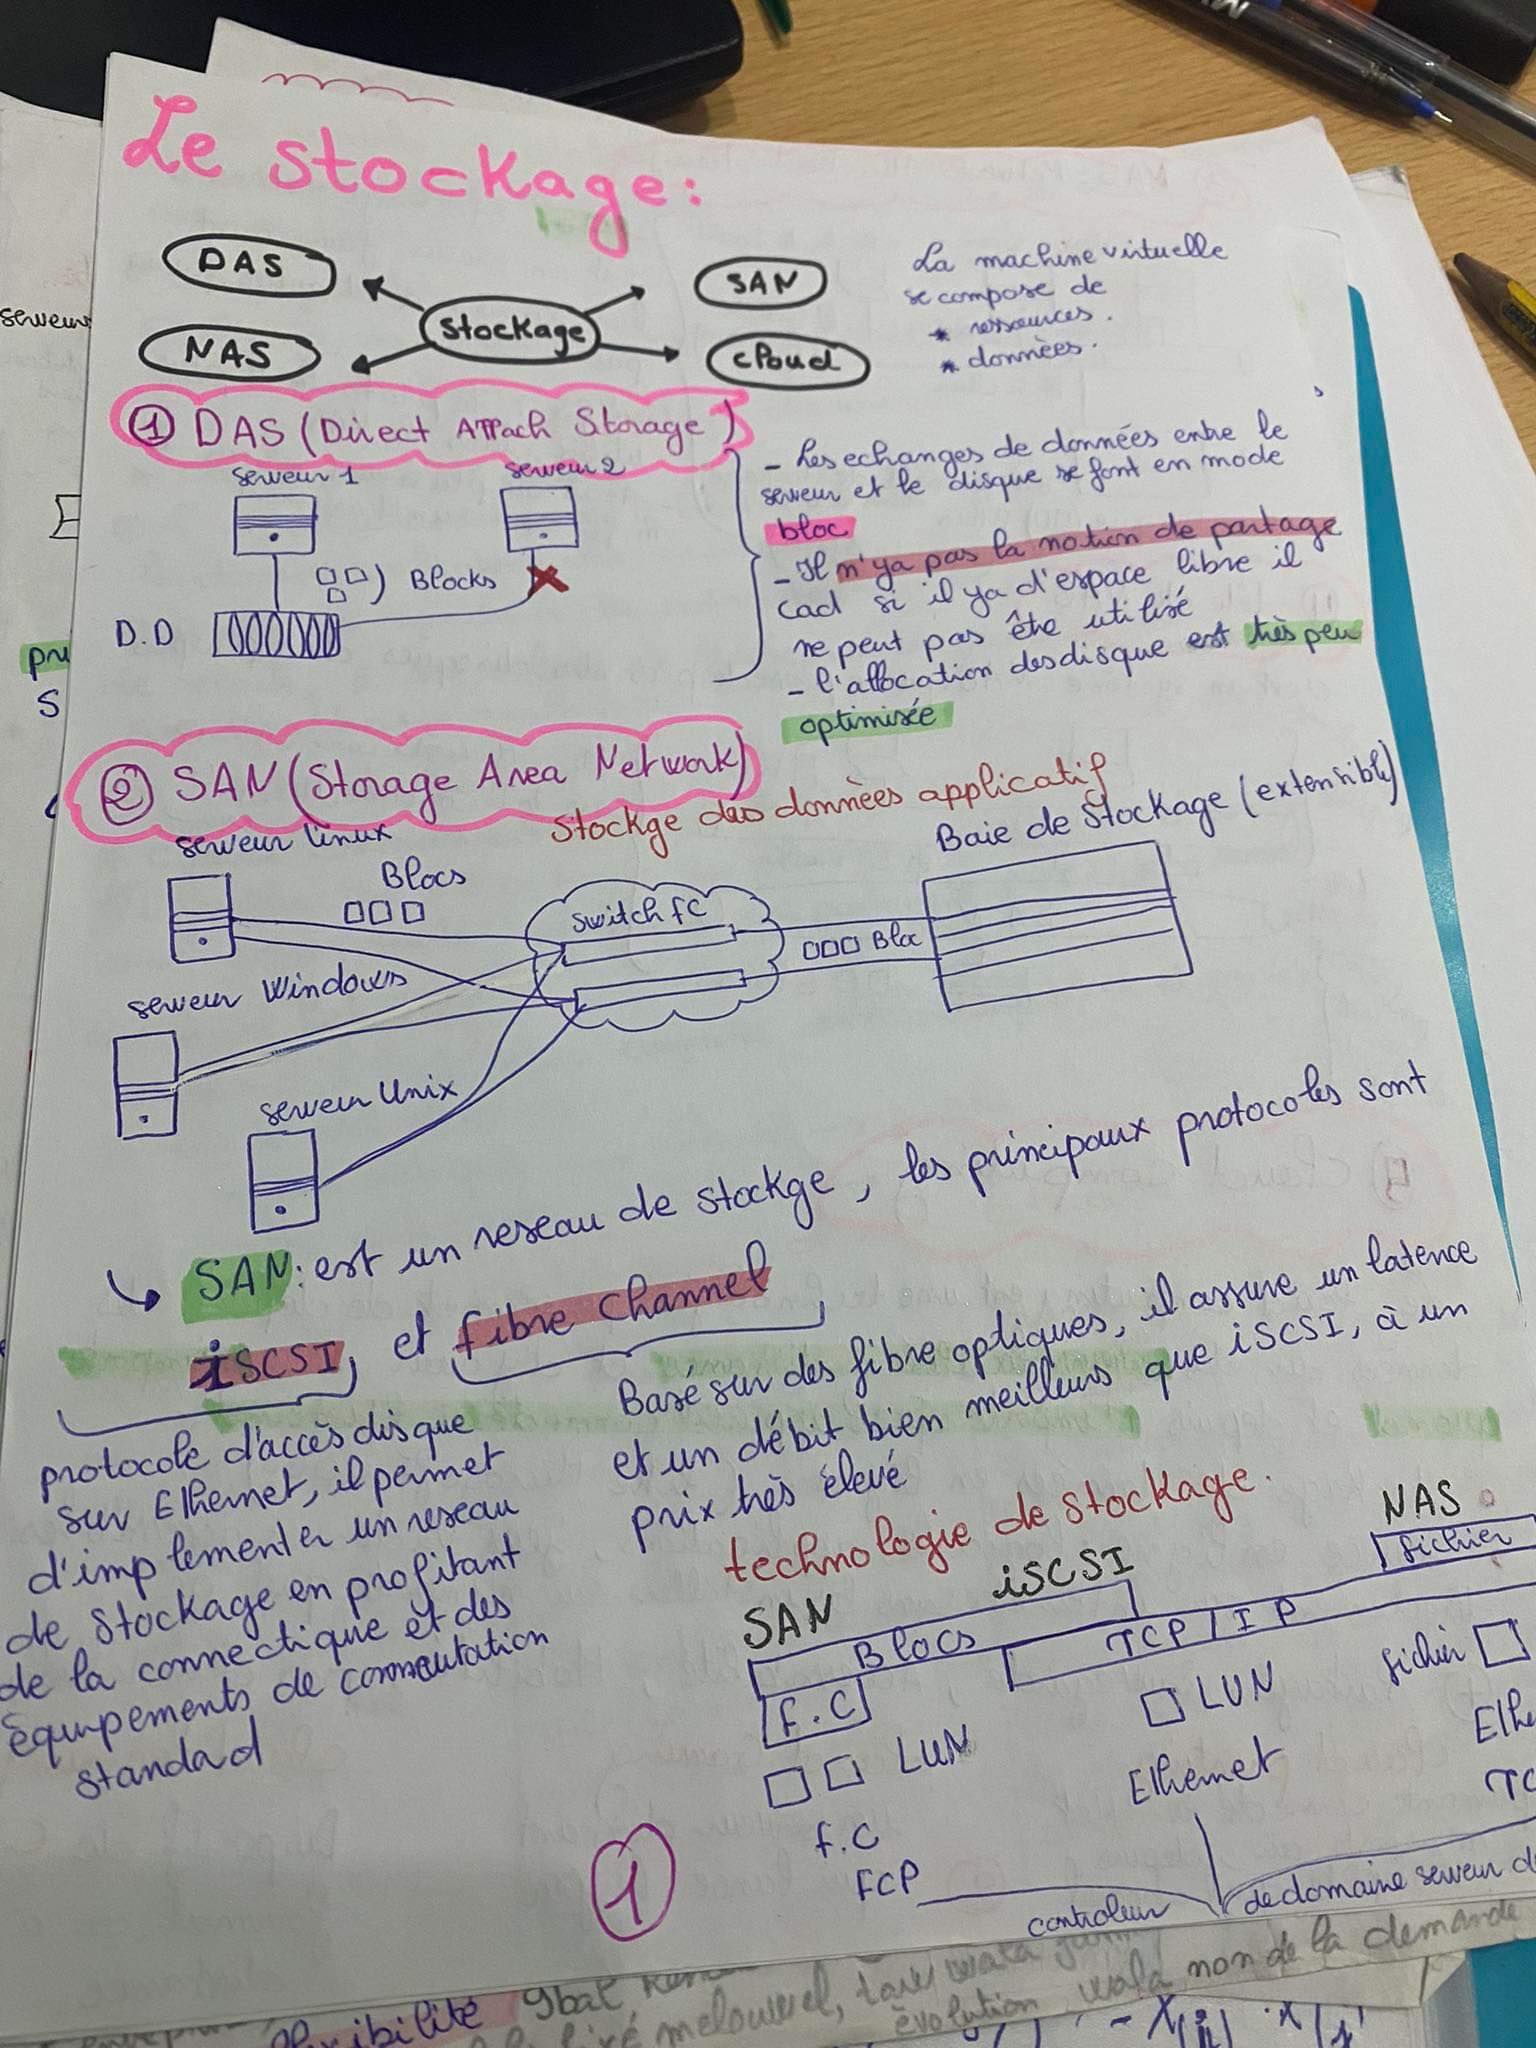 Le stockage:
DAS
SAN
NAS
Stockage
cloud
La machine virtuelle
se compose de
* ressources.
* données.
① DAS (Direct Attach Storage)
serveur 1
serveur 2
Blocks
D.D
- Les echanges de données entre le
serveur et le disque se font en mode
bloc
- Il n'ya pas la notion de partage
cad si il ya d'espace libre il
ne peut pas être utilisé
- l'allocation des disque est très peu
optimisée
② SAN (Storage Area Network)
Stockge des données applicatif
Baie de Stockage (extensible)
serveur linux
Blocs
switch fc
Bloc
serveur Windows
serveur Unix
SAN: est un reseau de stockge, les principaux protocoles sont
iSCSI, et fibre channel
protocole d'accès disque
sur Ethernet, il permet
d'implementer un reseau
de Stockage en profitant
de la connectique et des
équipements de commutation
standad
Basé sur des fibre optiques, il assure un latence
et un débit bien meilleurs que iSCSI, à un
prix très élevé
technologie de stockage.
SAN
iSCSI
NAS
fichier
Blocs
TCP/IP
F.C
LUN
LUN
fichier
Ethernet
Ethe
f.C
FCP
TC
controleur
de domaine serveur d
1
serveur
pru
S
flexibilité
evolution
non de la demande